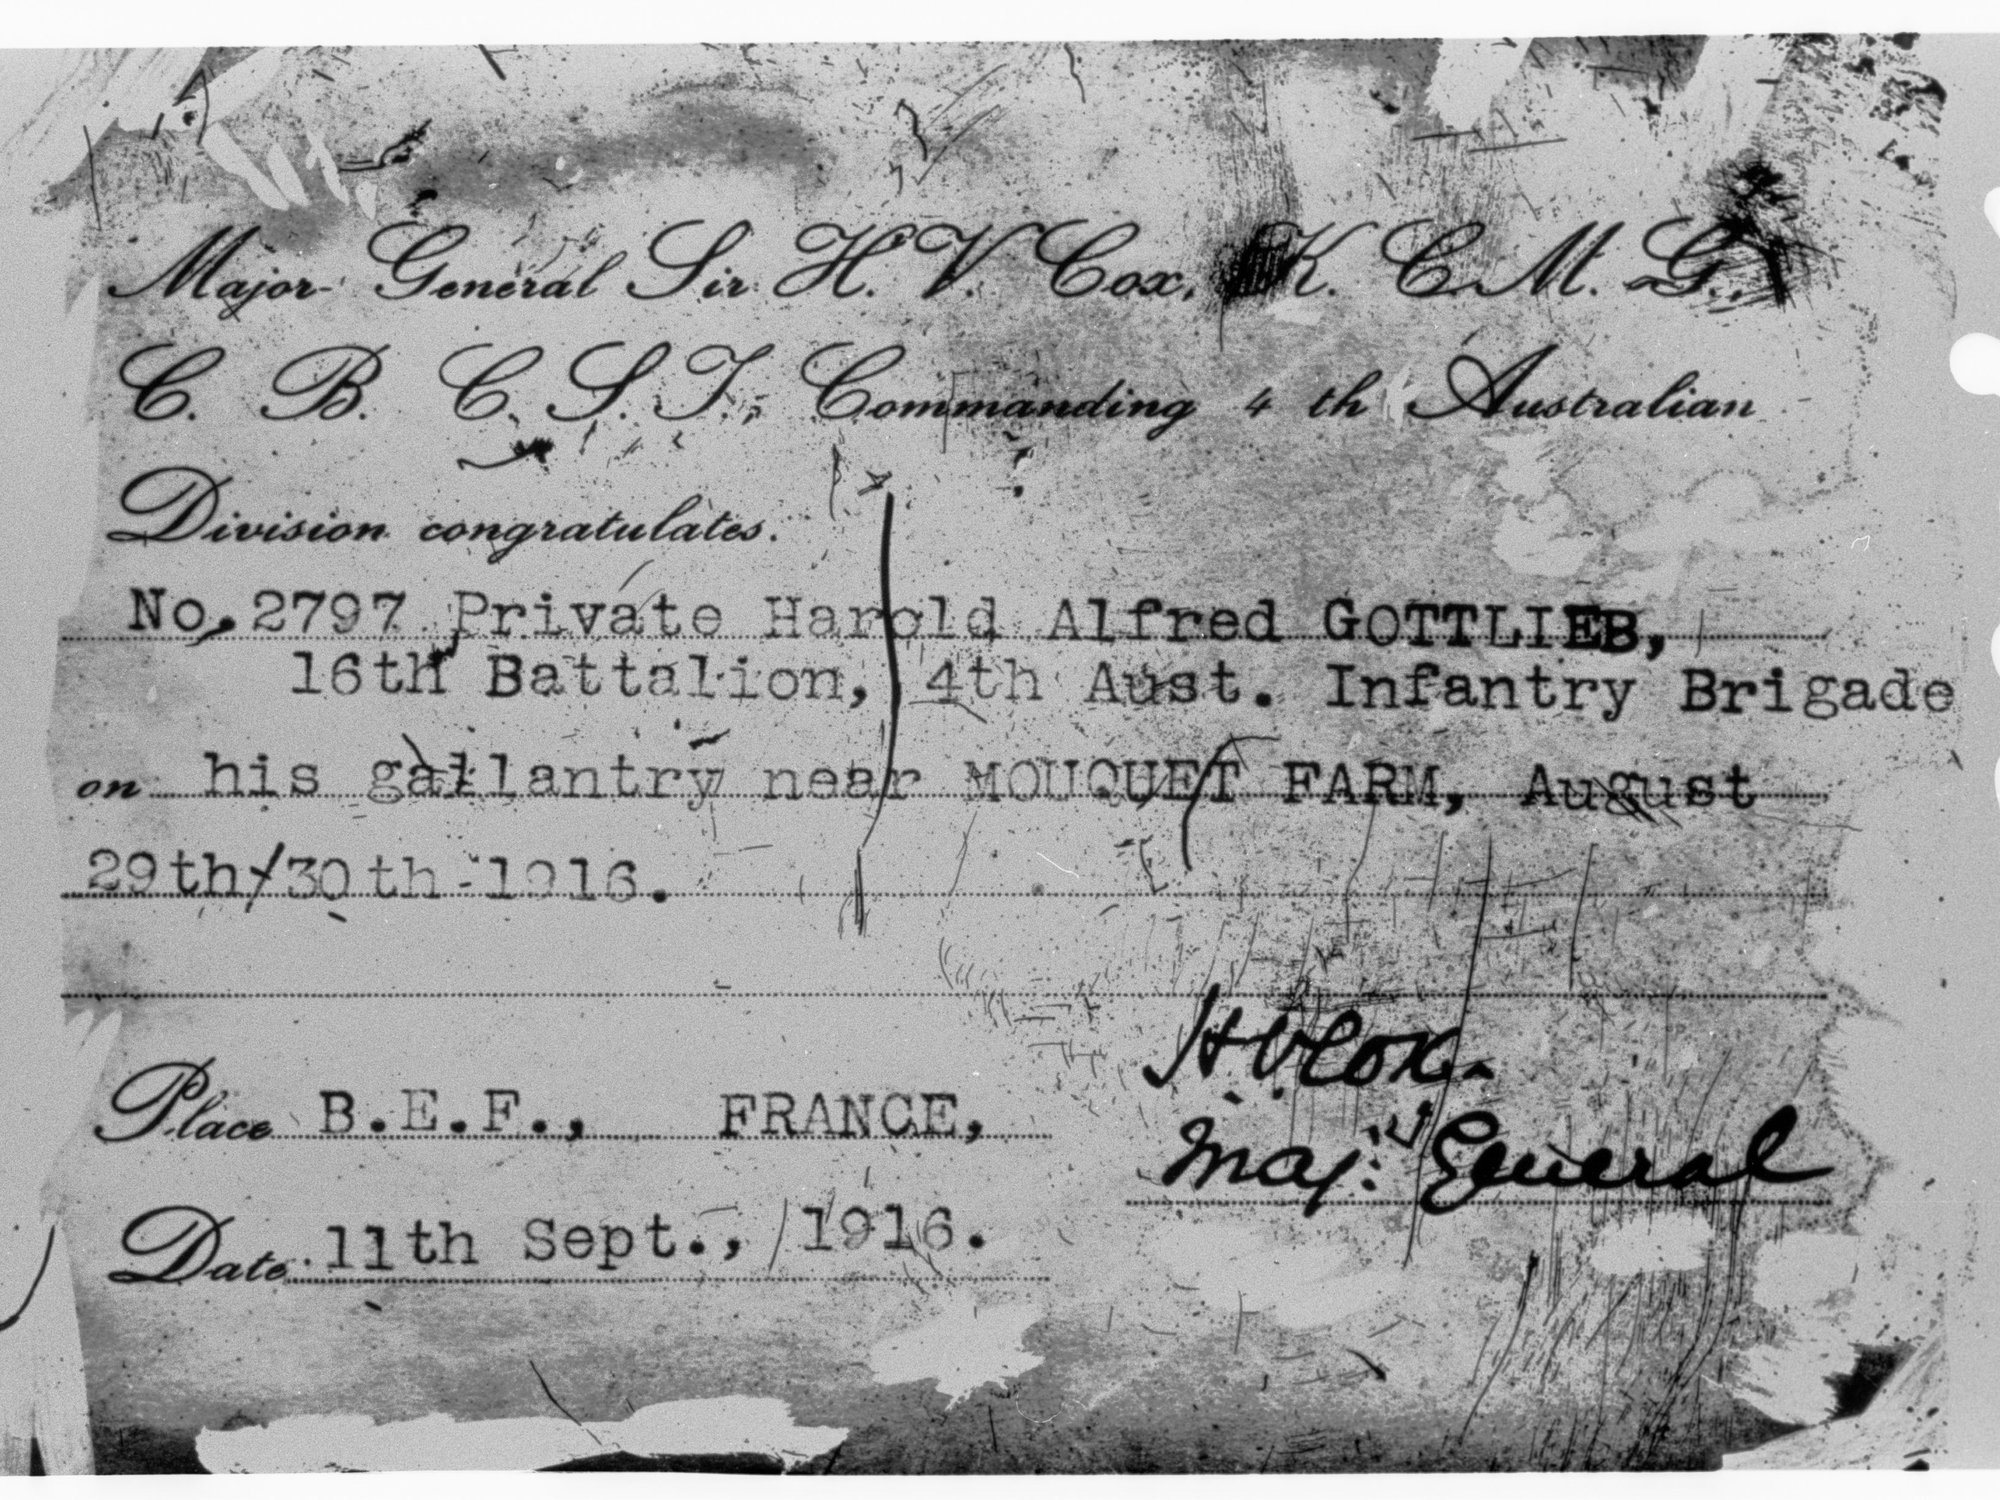 Major General Sir H. V. Cox, K. C. M. G.,
C. B. C. S. I., Commanding 4 th Australian
Division congratulates.
No. 2797 Private Harold Alfred GOTTLIEB,
16th Battalion, 4th Aust. Infantry Brigade
on his gallantry near MOUQUET FARM, August
29th/30th 1916.
H V Cox.
Place B.E.F., FRANCE,
Maj: General
Date 11th Sept., 1916.